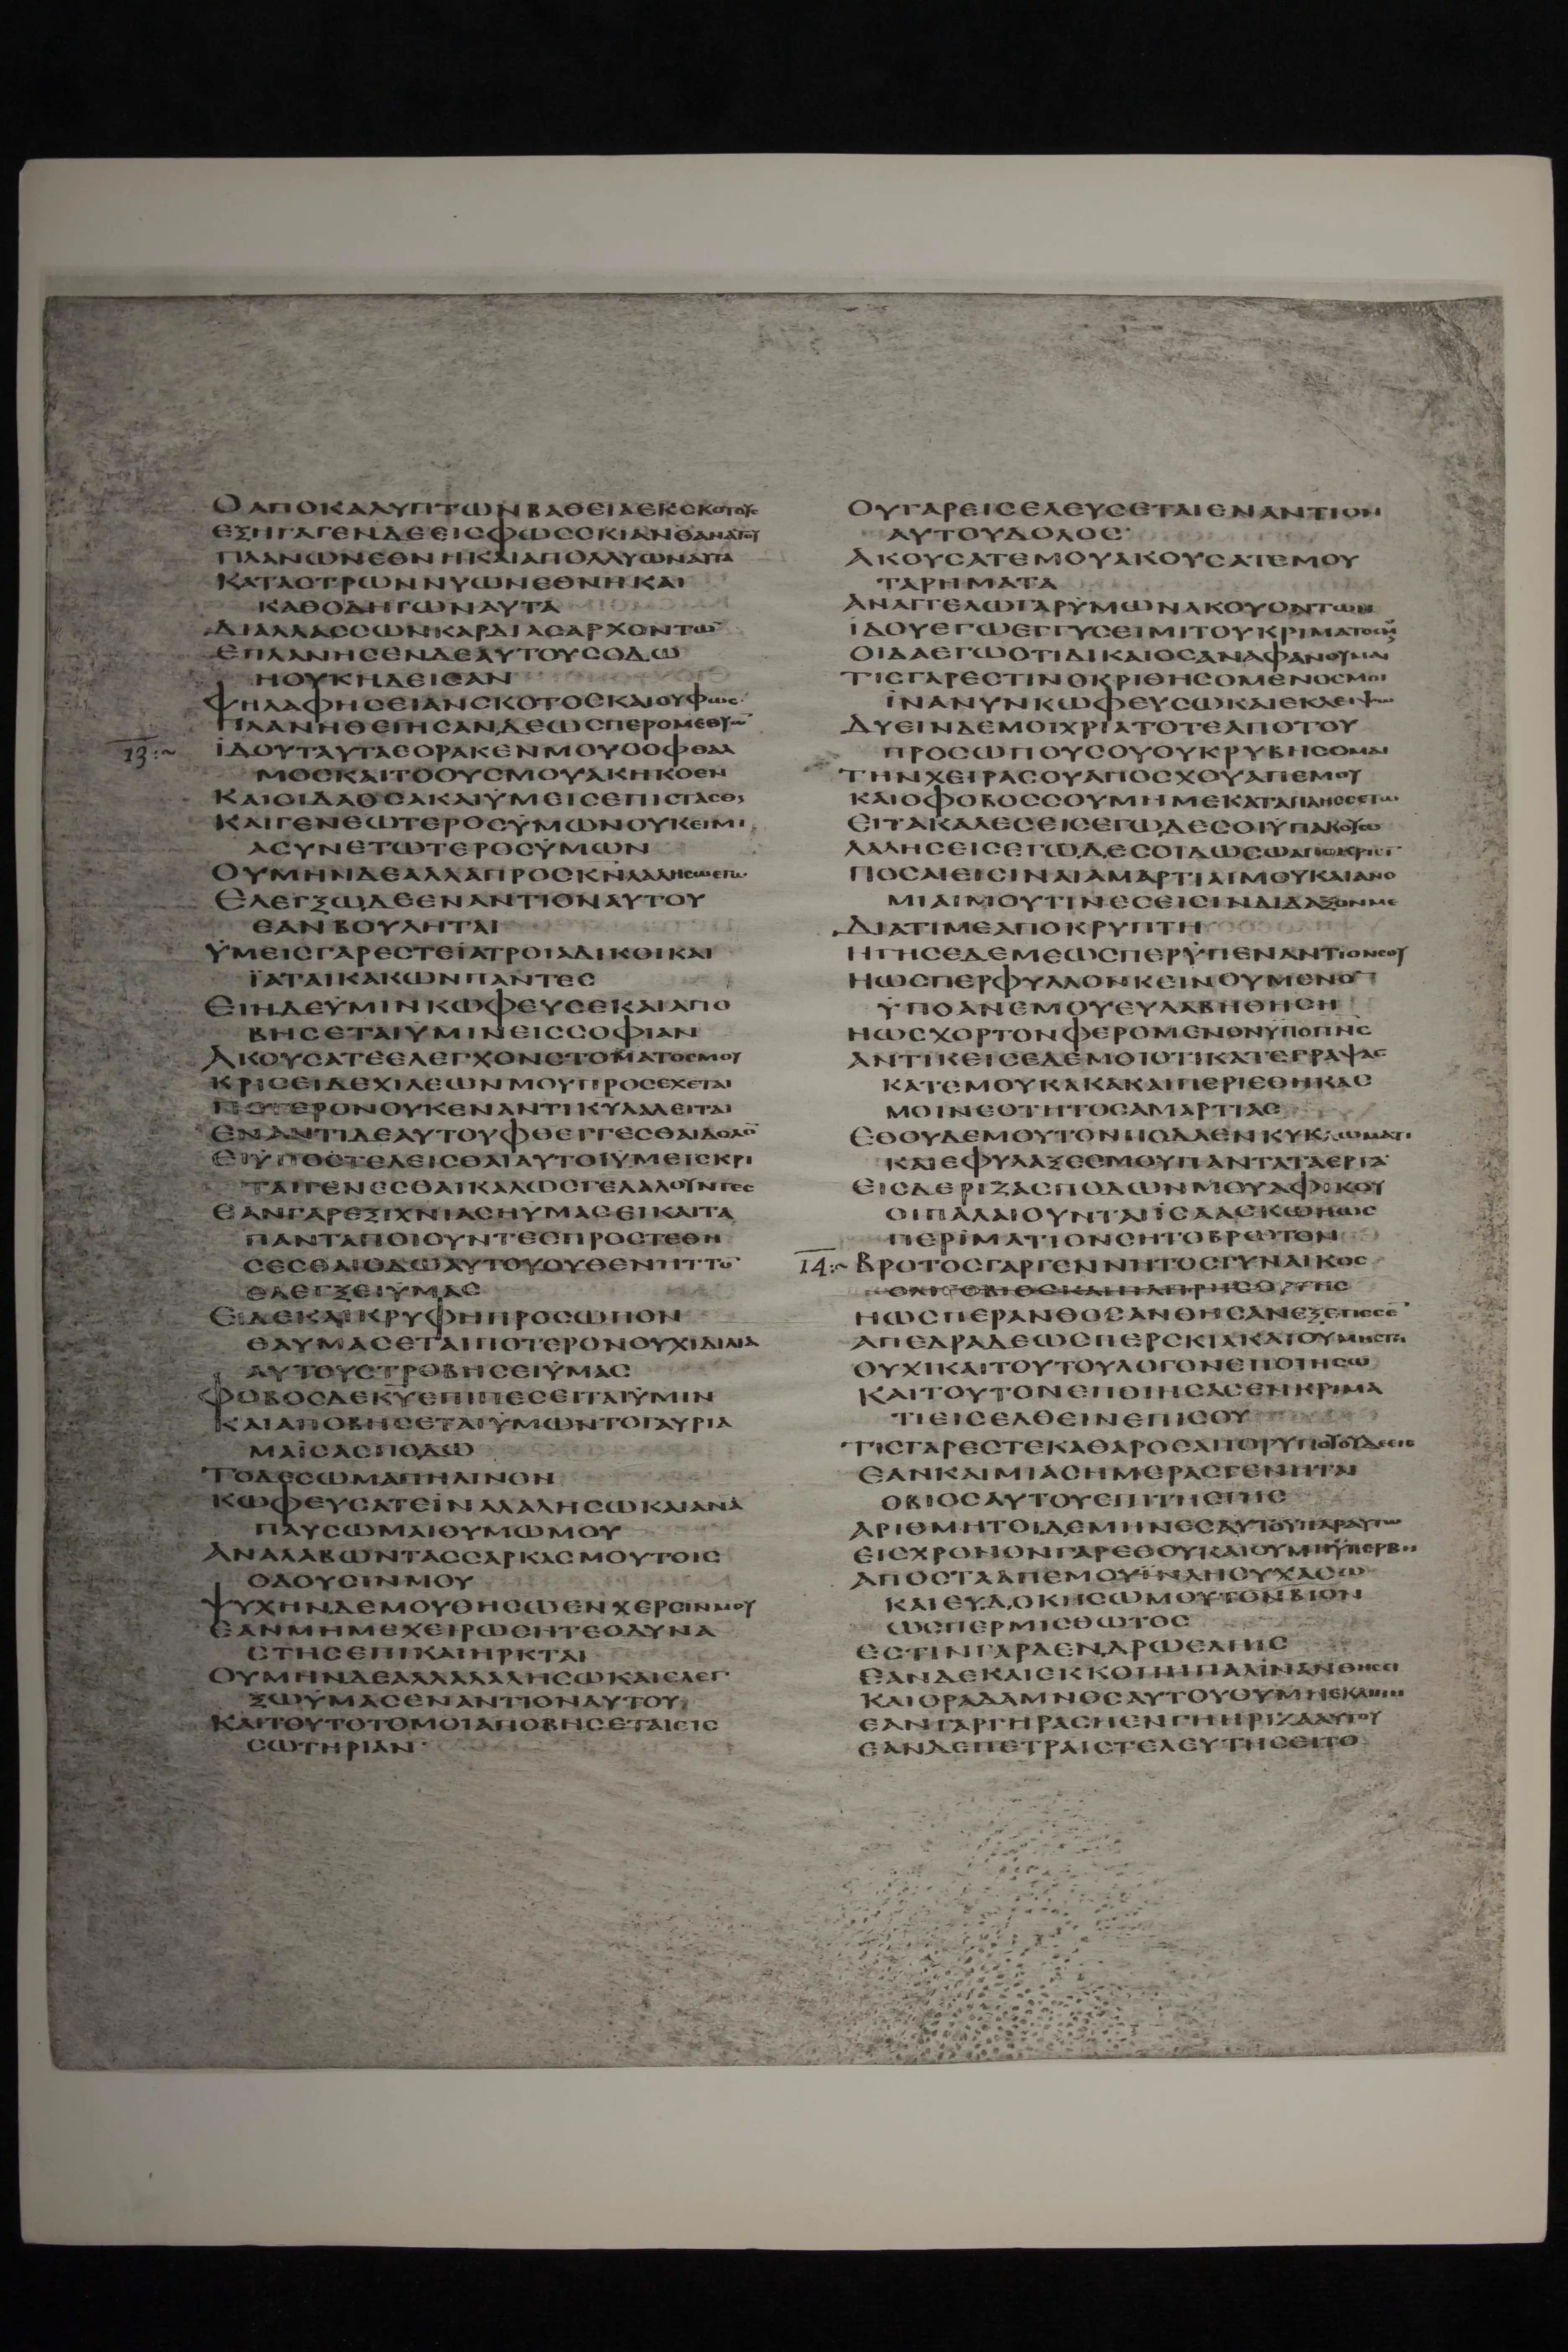 ΟΑΠΟΚΑΛΥΠΤΩΝΒΑΘΕΙΑΕΚΣΚΟΤΟΥΣ
ΕΞΗΓΑΓΕΝΔΕΕΙΣΦΩΣΣΚΙΑΝΘΑΝΑΤΟΥ
ΠΛΑΝΩΝΕΘΝΗΚΑΙΑΠΟΛΛΥΩΝΑΥΤΑ
ΚΑΤΑΣΤΡΩΝΝΥΩΝΕΘΝΗΚΑΙ
ΚΑΘΟΔΗΓΩΝΑΥΤΑ
ΔΙΑΛΛΑΣΣΩΝΚΑΡΔΙΑΣΑΡΧΟΝΤΩ̅
ΕΠΛΑΝΗΣΕΝΔΕΑΥΤΟΥΣΟΔΩ
ΗΟΥΚΗΔΕΙΣΑΝ
ΨΗΛΑΦΗΣΕΙΑΝΣΚΟΤΟΣΚΑΙΟΥΦΩΣ
ΠΛΑΝΗΘΕΙΗΣΑΝΔΕΩΣΠΕΡΟΜΕΘΥΩ̅
13:~ ΪΔΟΥΤΑΥΤΑΕΟΡΑΚΕΝΜΟΥΟΟΦΘΑΛ
ΜΟΣΚΑΙΤΟΟΥΣΜΟΥΑΚΗΚΟΕΝ
ΚΑΙΟΙΔΑΟΣΑΚΑΙΫΜΕΙΣΕΠΙΣΤΑΣΘΕ
ΚΑΙΓΕΝΕΩΤΕΡΟΣΫΜΩΝΟΥΚΕΙΜΙ
ΑΣΥΝΕΤΩΤΕΡΟΣΫΜΩΝ
ΟΥΜΗΝΔΕΑΛΛΑΠΡΟΣΚ̅Ν̅ΛΑΛΗΣΩ
ΕΛΕΓΞΩΔΕΕΝΑΝΤΙΟΝΑΥΤΟΥ
ΕΑΝΒΟΥΛΗΤΑΙ
ΫΜΕΙΣΓΑΡΕΣΤΕΪΑΤΡΟΙΑΔΙΚΟΙΚΑΙ
ΪΑΤΑΙΚΑΚΩΝΠΑΝΤΕΣ
ΕΙΗΔΕΫΜΙΝΚΩΦΕΥΣΕΚΑΙΑΠΟ
ΒΗΣΕΤΑΙΫΜΙΝΕΙΣΣΟΦΙΑΝ
ΑΚΟΥΣΑΤΕΕΛΕΓΧΟΝΣΤΟΜΑΤΟΣΜΟΥ
ΚΡΙΣΕΙΔΕΧΙΛΕΩΝΜΟΥΠΡΟΣΕΧΕΤΑΙ
ΠΟΤΕΡΟΝΟΥΚΕΝΑΝΤΙΚΥΛΑΛΕΙΤΑΙ
ΕΝΑΝΤΙΔΕΑΥΤΟΥΦΘΕΓΓΕΣΘΑΙΔΟΛΟ̅
ΕΙΫΠΟΣΤΕΛΕΙΣΘΑΙΑΥΤΟΙΫΜΕΙΣΚΡΙ
ΤΑΙΓΕΝΕΣΘΑΙΚΑΛΩΣΓΕΛΑΛΟΥΝΤΕΣ
ΕΑΝΓΑΡΕΞΙΧΝΙΑΣΗΥΜΑΣΕΙΚΑΙΤΑ
ΠΑΝΤΑΠΟΙΟΥΝΤΕΣΠΡΟΣΤΕΘΗ
ΣΕΣΘΑΙΟΔΩΑΥΤΟΥΟΥΘΕΝΗΤΤΟ̅
ΕΛΕΓΞΕΙΥΜΑΣ
ΕΙΔΕΚΑΙΚΡΥΦΗΠΡΟΣΩΠΟΝ
ΘΑΥΜΑΣΕΤΑΙΠΟΤΕΡΟΝΟΥΧΙΔΙΝΑ
ΑΥΤΟΥΣΤΡΟΒΗΣΕΙΫΜΑΣ
ΦΟΒΟΣΔΕΚ̅Υ̅ΕΠΙΠΕΣΕΙΤΑΙΫΜΙΝ
ΚΑΙΑΠΟΒΗΣΕΤΑΙΫΜΩΝΤΟΓΑΥΡΙΑ
ΜΑΪΣΑΣΠΟΔΩ
ΤΟΔΕΣΩΜΑΠΗΛΙΝΟΝ
ΚΩΦΕΥΣΑΤΕΪΝΑΛΑΛΗΣΩΚΑΙΑΝΑ
ΠΑΥΣΩΜΑΙΘΥΜΩΜΟΥ
ΑΝΑΛΑΒΩΝΤΑΣΣΑΡΚΑΣΜΟΥΤΟΙΣ
ΟΔΟΥΣΙΝΜΟΥ
ΨΥΧΗΝΔΕΜΟΥΘΗΣΩΕΝΧΕΡΣΙΝΜΟΥ
ΕΑΝΜΗΜΕΧΕΙΡΩΣΗΤΕΟΔΥΝΑ
ΣΤΗΣΕΠΙΚΑΙΗΡΚΤΑΙ
ΟΥΜΗΝΔΕΑΛΛΑΛΑΛΗΣΩΚΑΙΕΛΕΓ
ΞΩΫΜΑΣΕΝΑΝΤΙΟΝΑΥΤΟΥ
ΚΑΙΤΟΥΤΟΤΟΜΟΙΑΠΟΒΗΣΕΤΑΙΕΙΣ
ΣΩΤΗΡΙΑΝ
ΟΥΓΑΡΕΙΣΕΛΕΥΣΕΤΑΙΕΝΑΝΤΙΟΝ
ΑΥΤΟΥΔΟΛΟΣ
ΑΚΟΥΣΑΤΕΜΟΥΑΚΟΥΣΑΤΕΜΟΥ
ΤΑΡΗΜΑΤΑ
ΑΝΑΓΓΕΛΩΓΑΡΫΜΩΝΑΚΟΥΟΝΤΩΝ
ΪΔΟΥΕΓΩΕΓΓΥΣΕΙΜΙΤΟΥΚΡΙΜΑΤΟΣ
ΟΙΔΑΕΓΩΟΤΙΔΙΚΑΙΟΣΑΝΑΦΑΝΟΥΜΑΙ
ΤΙΣΓΑΡΕΣΤΙΝΟΚΡΙΘΗΣΟΜΕΝΟΣΜΟΙ
ΪΝΑΝΥΝΚΩΦΕΥΣΩΚΑΙΕΚΛΕΙΨΩ
ΔΥΕΙΝΔΕΜΟΙΧΡΙΑΤΟΤΕΑΠΟΤΟΥ
ΠΡΟΣΩΠΟΥΣΟΥΟΥΚΡΥΒΗΣΟΜΑΙ
ΤΗΝΧΕΙΡΑΣΟΥΑΠΟΣΧΟΥΑΠΕΜΟΥ
ΚΑΙΟΦΟΒΟΣΣΟΥΜΗΜΕΚΑΤΑΠΛΗΣΣΕΤΩ
ΕΙΤΑΚΑΛΕΣΕΙΣΕΓΩΔΕΣΟΙΫΠΑΚΟΥΣΩ
ΛΑΛΗΣΕΙΣΕΓΩΔΕΣΟΙΔΩΣΩΑΠΟΚΡΙΣΙ̅
ΠΟΣΑΙΕΙΣΙΝΑΙΑΜΑΡΤΙΑΙΜΟΥΚΑΙΑΝΟ
ΜΙΑΙΜΟΥΤΙΝΕΣΕΙΣΙΝΔΙΔΑΞΟΝΜΕ
ΔΙΑΤΙΜΕΑΠΟΚΡΥΠΤΗ
ΗΓΗΣΕΔΕΜΕΩΣΠΕΡΫΠΕΝΑΝΤΙΟΝΣΟΥ
ΗΩΣΠΕΡΦΥΛΛΟΝΚΕΙΝΟΥΜΕΝΟ̅
ΫΠΟΑΝΕΜΟΥΕΥΛΑΒΗΘΗΣΗ
ΗΩΣΧΟΡΤΟΝΦΕΡΟΜΕΝΟΝΥΠΟΠΝ̅Σ̅
ΑΝΤΙΚΕΙΣΕΔΕΜΟΙΟΤΙΚΑΤΕΓΡΑΨΑΣ
ΚΑΤΕΜΟΥΚΑΚΑΚΑΙΠΕΡΙΕΘΗΚΑΣ
ΜΟΙΝΕΟΤΗΤΟΣΑΜΑΡΤΙΑΣ
ΕΘΟΥΔΕΜΟΥΤΟΝΠΟΔΑΕΝΚΥΚΛΩΜΑΤΙ
ΚΑΙΕΦΥΛΑΞΕΣΜΟΥΠΑΝΤΑΤΑΕΡΓΑ
ΕΙΣΔΕΡΙΖΑΣΠΟΔΩΝΜΟΥΑΦΙΚΟΥ
ΟΙΠΑΛΑΙΟΥΝΤΑΙΪΣΑΑΣΚΩΗΩΣ
ΠΕΡΪΜΑΤΙΟΝΣΗΤΟΒΡΩΤΟΝ
14:~ ΒΡΟΤΟΣΓΑΡΓΕΝΝΗΤΟΣΓΥΝΑΙΚΟΣ
ΗΩΣΠΕΡΑΝΘΟΣΑΝΘΗΣΑΝΕΞΕΠΕΣΕ̅
ΑΠΕΔΡΑΔΕΩΣΠΕΡΣΚΙΑΚΑΙΟΥΜΗΣΤΗ
ΟΥΧΙΚΑΙΤΟΥΤΟΥΛΟΓΟΝΕΠΟΙΗΣΩ
ΚΑΙΤΟΥΤΟΝΕΠΟΙΗΣΑΣΕΝΚΡΙΜΑ
ΤΙΕΙΣΕΛΘΕΙΝΕΠΙΣΟΥ
ΤΙΣΓΑΡΕΣΤΕΚΑΘΑΡΟΣΑΠΟΡΥΠΟΥ
ΕΑΝΚΑΙΜΙΑΣΗΜΕΡΑΣΓΕΝΗΤΑΙ
ΟΒΙΟΣΑΥΤΟΥΕΠΙΤΗΣΓΗΣ
ΑΡΙΘΜΗΤΟΙΔΕΜΗΝΕΣΑΥΤΟΥΠΑΡΑΥΤΩ
ΕΙΣΧΡΟΝΟΝΓΑΡΕΘΟΥΚΑΙΟΥΜΗΫΠΕΡΒΗ
ΑΠΟΣΤΑΑΠΕΜΟΥΪΝΑΗΣΥΧΑΣΩ
ΚΑΙΕΥΔΟΚΗΣΩΜΟΥΤΟΝΒΙΟΝ
ΩΣΠΕΡΜΙΣΘΩΤΟΣ
ΕΣΤΙΝΓΑΡΔΕΝΔΡΩΕΛΠΙΣ
ΕΑΝΔΕΚΑΙΕΚΚΟΠΗΠΑΛΙΝΑΝΘΗΣΕΙ
ΚΑΙΟΡΑΔΑΜΝΟΣΑΥΤΟΥΟΥΜΗΕΚΛΙΠΗ
ΕΑΝΓΑΡΓΗΡΑΣΗΕΝΓΗΗΡΙΖΑΑΥΤΟΥ
ΕΑΝΔΕΠΕΤΡΑΙΣΤΕΛΕΥΤΗΣΕΙΤΟ